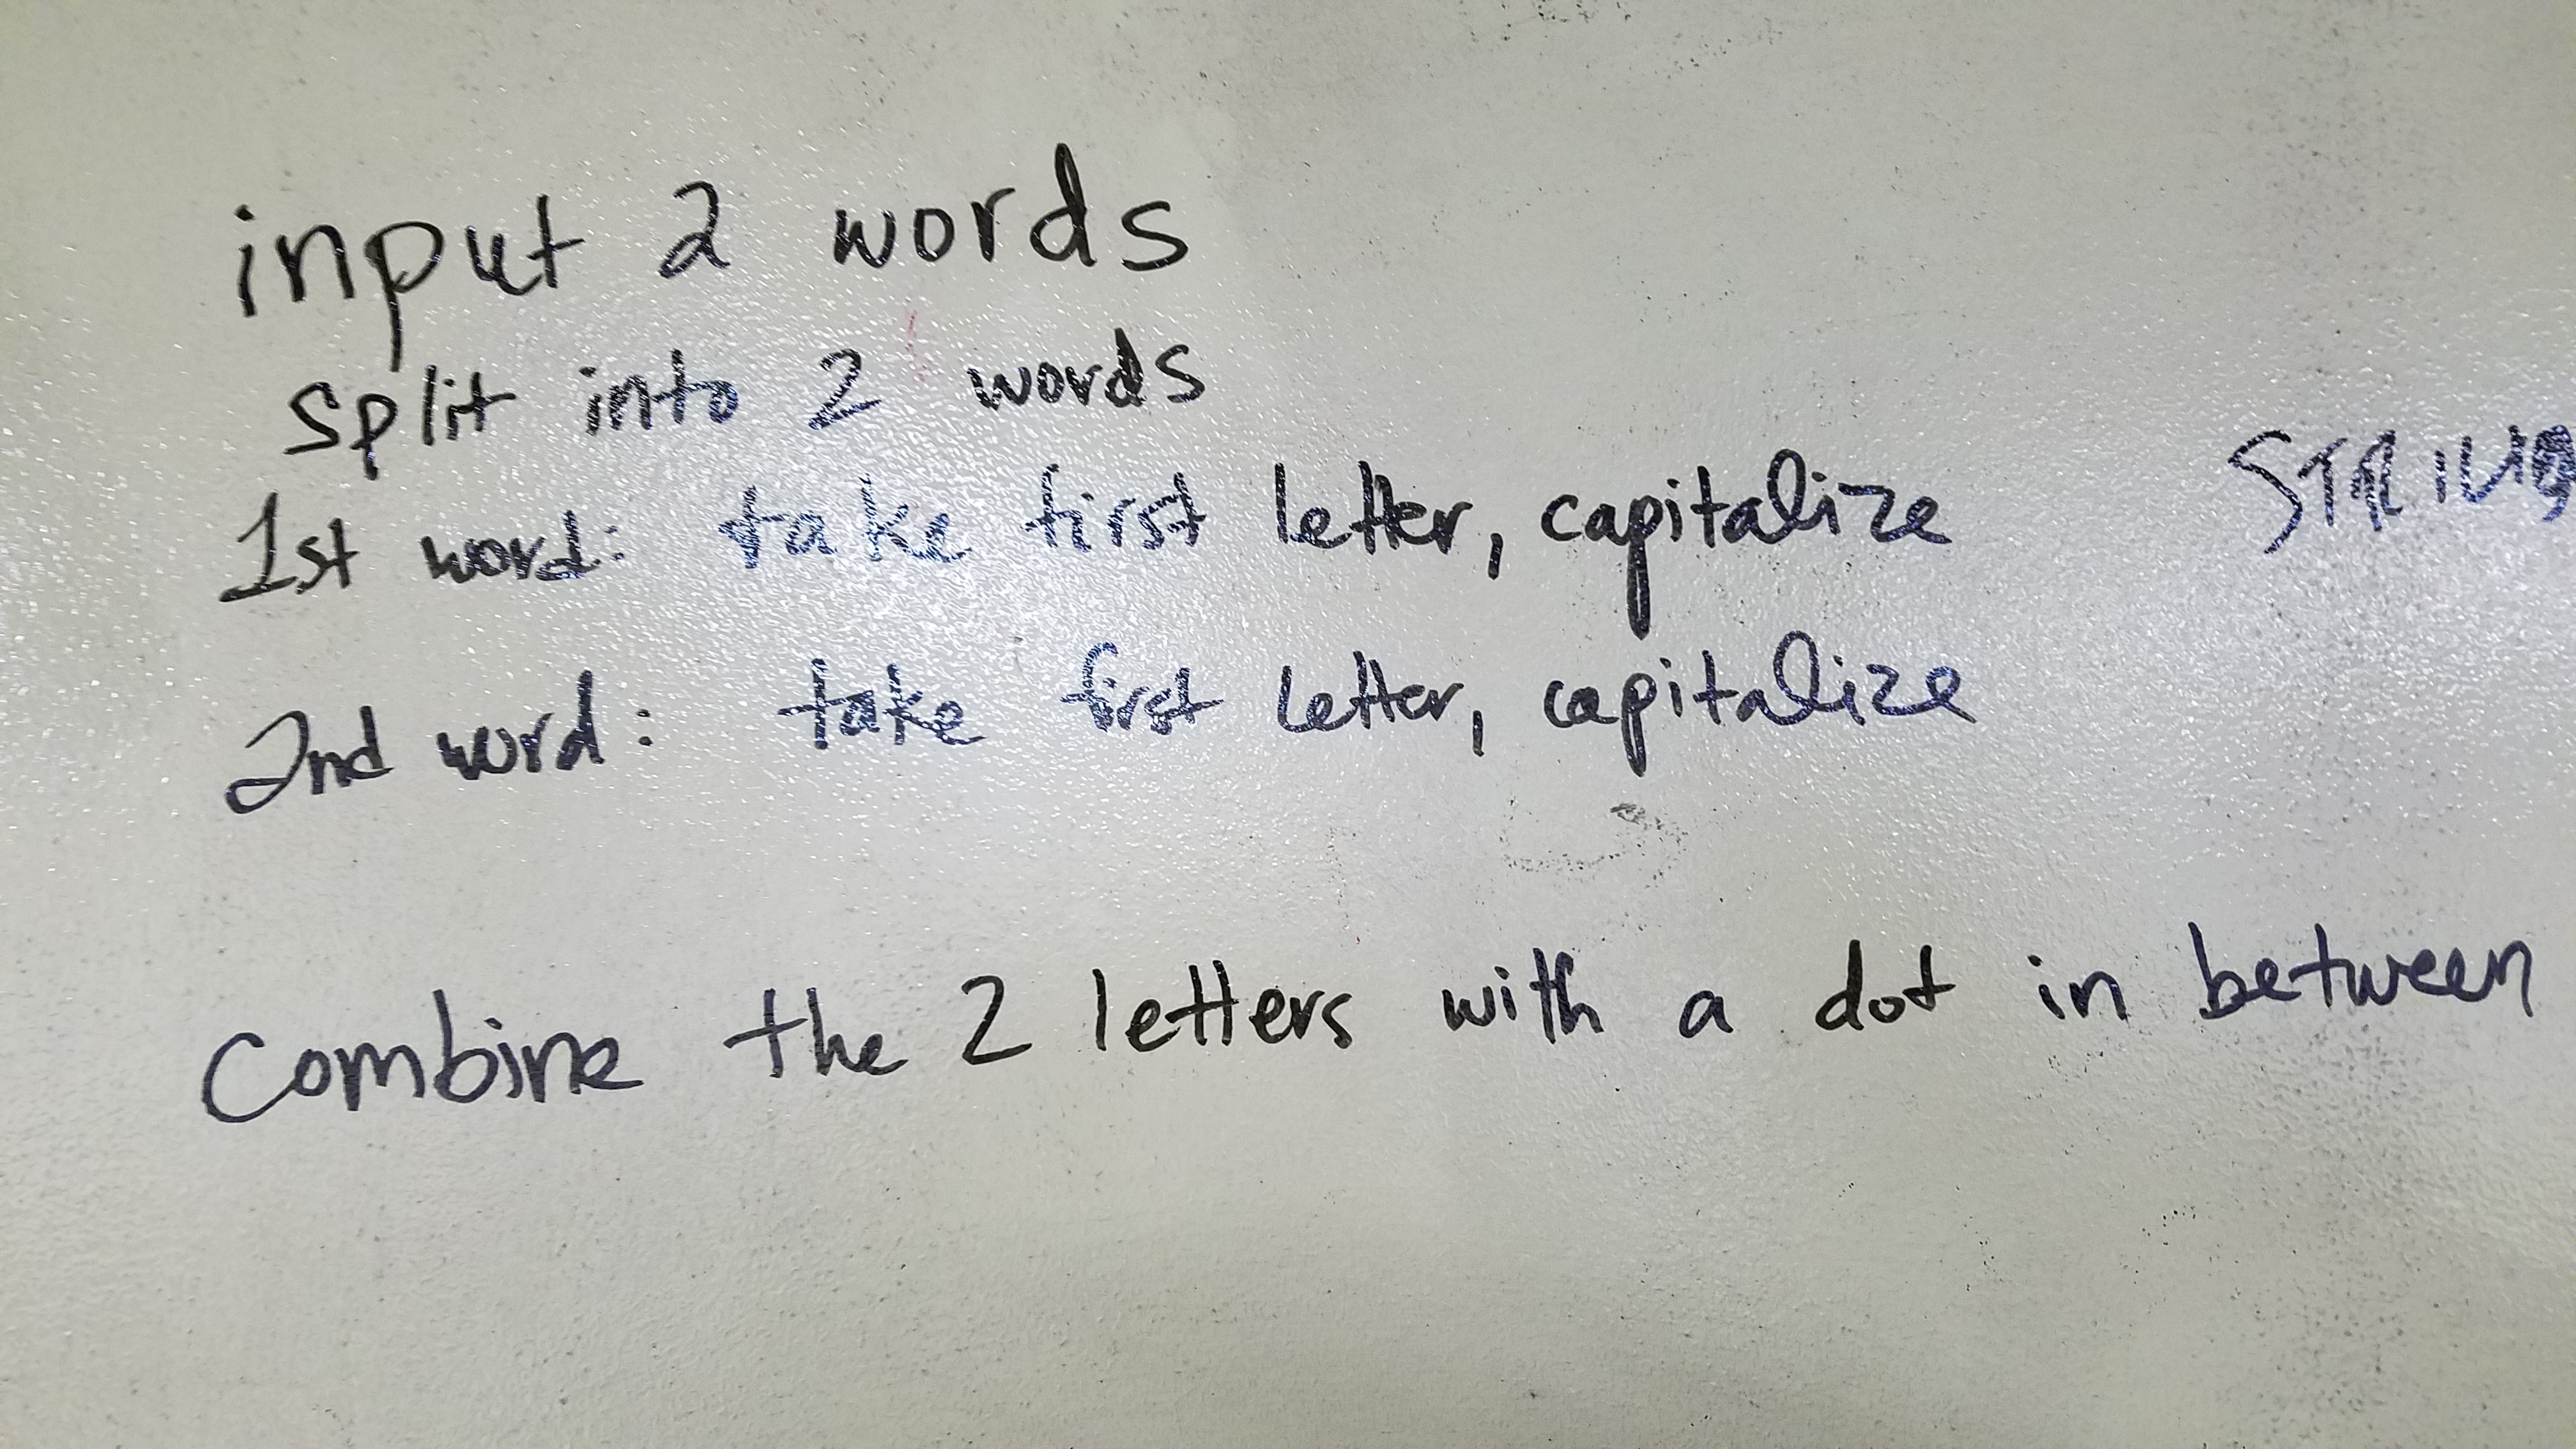 input 2 words
split into 2 words
1st word: take first letter, capitalize
STRING
2nd word: take first letter, capitalize
Combine the 2 letters with a dot in between